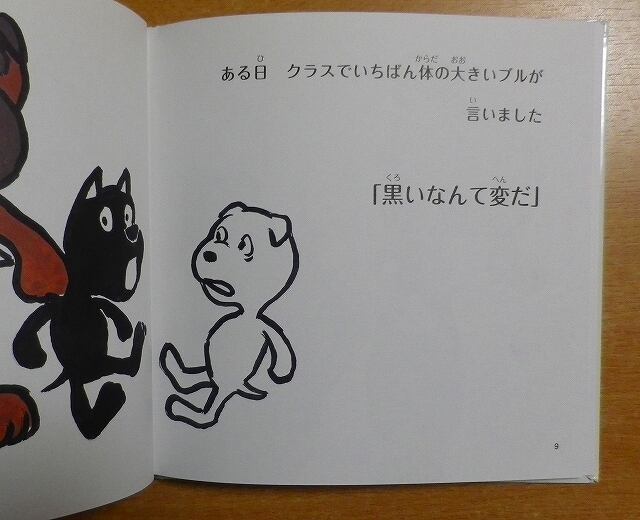 ある日　クラスでいちばん体の大きいブルが
言いました
「黒いなんて変だ」
9